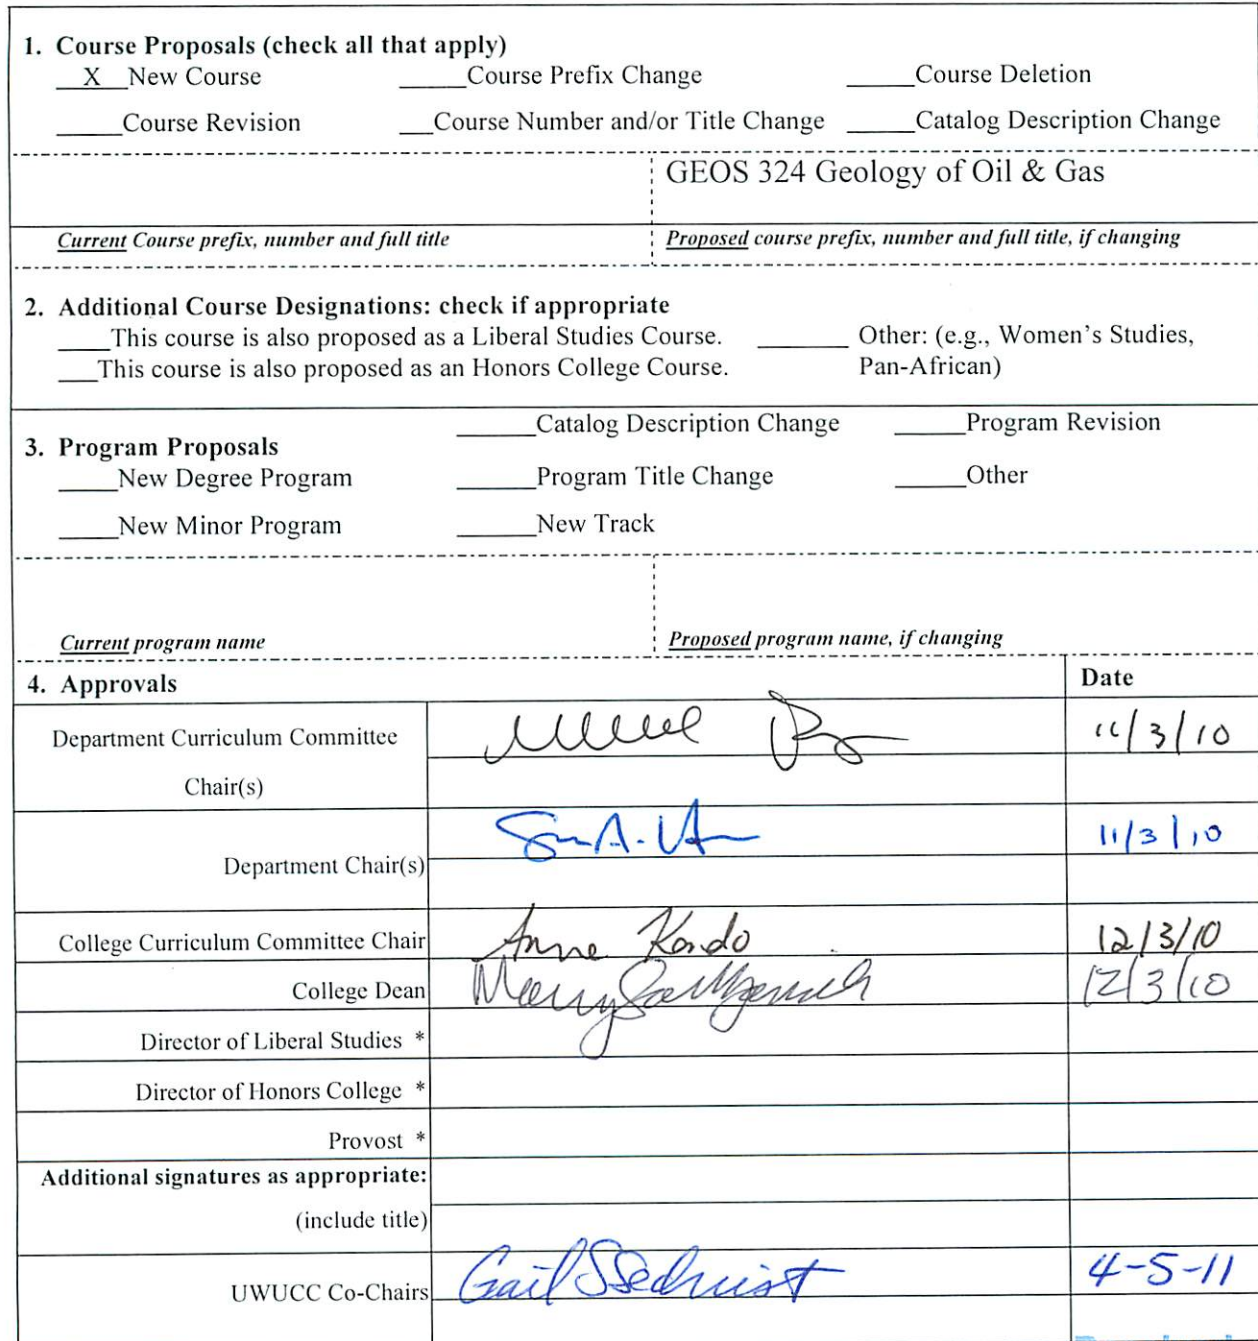 1. Course Proposals (check all that apply)
__X__New Course _____Course Prefix Change _____Course Deletion
_____Course Revision ___Course Number and/or Title Change _____Catalog Description Change
GEOS 324 Geology of Oil & Gas
Current Course prefix, number and full title Proposed course prefix, number and full title, if changing
2. Additional Course Designations: check if appropriate
____This course is also proposed as a Liberal Studies Course. _______ Other: (e.g., Women's Studies,
___This course is also proposed as an Honors College Course. Pan-African)
______Catalog Description Change ______Program Revision
3. Program Proposals
_____New Degree Program ______Program Title Change ______Other
_____New Minor Program ______New Track
Current program name Proposed program name, if changing
4. Approvals Date
Department Curriculum Committee 11/3/10
Chair(s)
11/3/10
Department Chair(s)
College Curriculum Committee Chair Anne Kondo 12/3/10
College Dean 12/3/10
Director of Liberal Studies *
Director of Honors College *
Provost *
Additional signatures as appropriate:
(include title)
UWUCC Co-Chairs Gail Sechrist 4-5-11